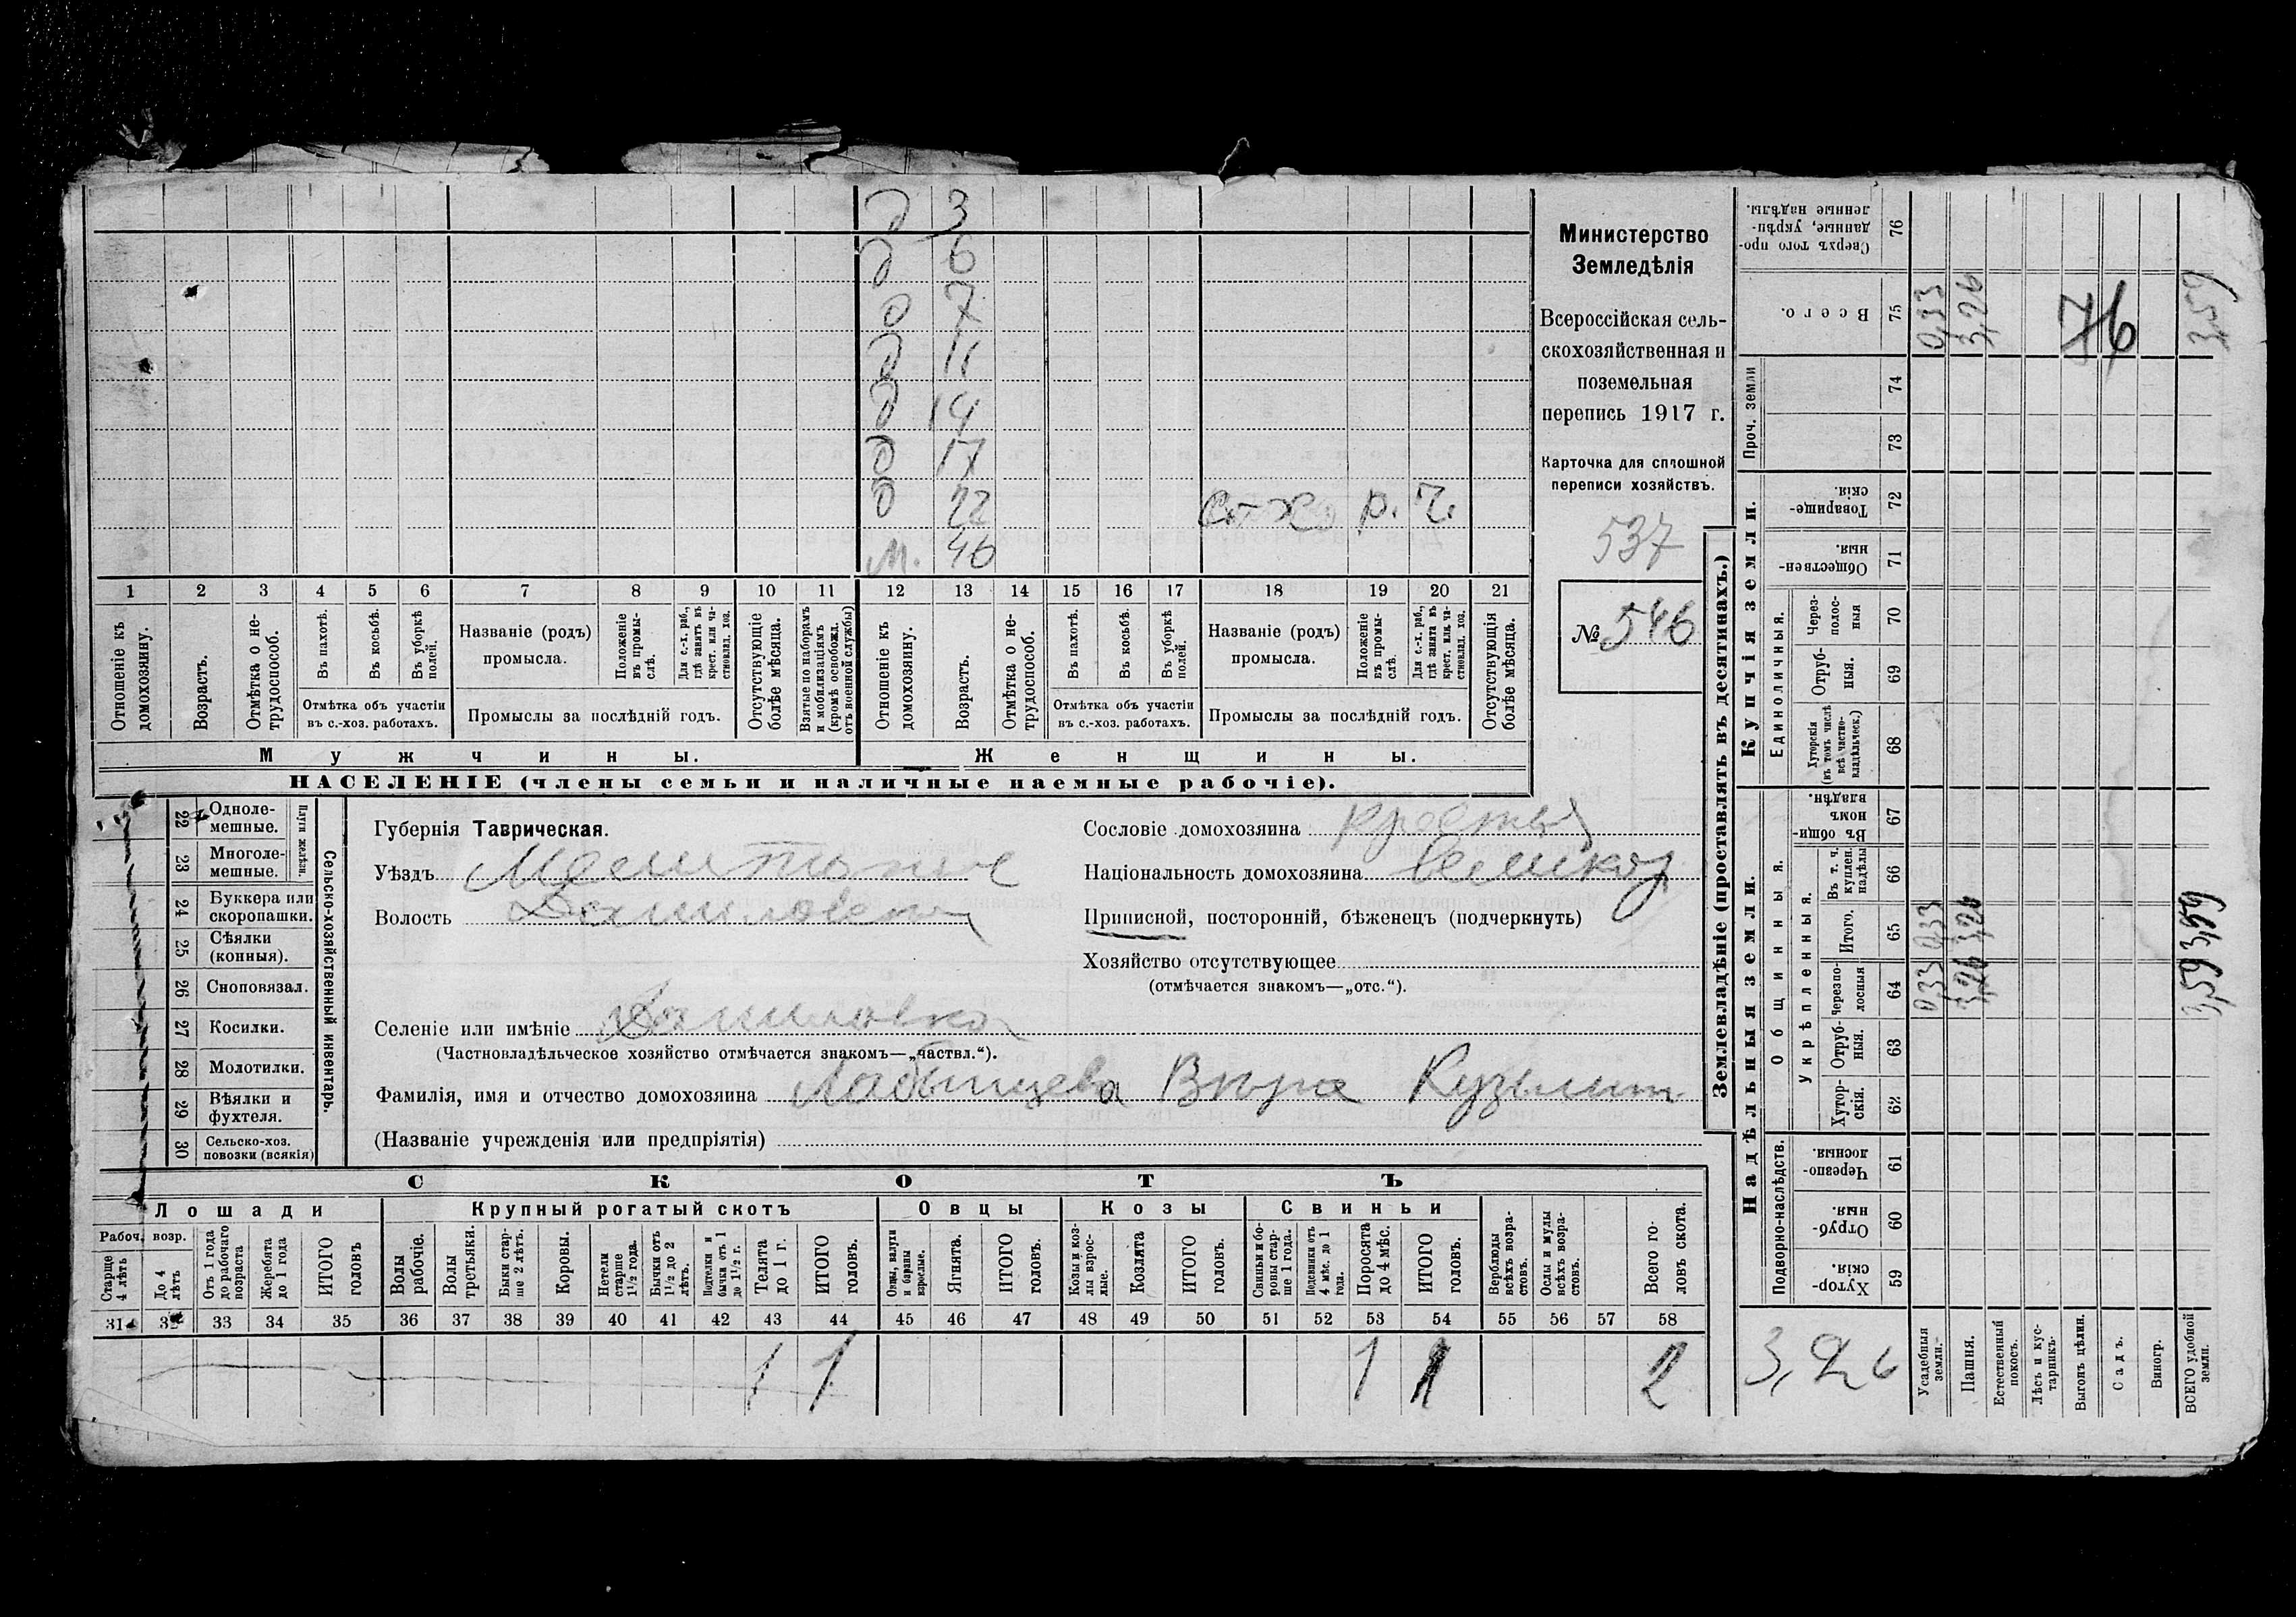 д 3
д 6
д 7
д 11
д 14
д 17
д 22 с.-х. р. ч.
м. 46
1 2 3 4 5 6 7 8 9 10 11 12 13 14 15 16 17 18 19 20 21
Отношеніе къ домохозяину.
Возрастъ.
Отмѣтка о не-трудоспособ.
Въ пахотѣ.
Въ косьбѣ.
Въ уборкѣ полей.
Отмѣтка объ участіи въ с.-хоз. работахъ.
Названіе (родъ) промысла.
Положеніе въ промы-слѣ.
Для с.-х. раб., гдѣ занятъ въ крест. или ча-стновлад. хоз.
Промыслы за послѣдній годъ.
Отсутствующіе болѣе мѣсяца.
Взятые по наборамъ и мобилизаціямъ (кромѣ освобожд. отъ военной службы)
Отношеніе къ домохозяину.
Возрастъ.
Отмѣтка о не-трудоспособ.
Въ пахотѣ.
Въ косьбѣ.
Въ уборкѣ полей.
Отмѣтка объ участіи въ с.-хоз. работахъ.
Названіе (родъ) промысла.
Положеніе въ промы-слѣ.
Для с.-х. раб., гдѣ занята въ крест. или ча-стновлад. хоз.
Промыслы за послѣдній годъ.
Отсутствующія болѣе мѣсяца.
Мужчины.
Женщины.
НАСЕЛЕНІЕ (члены семьи и наличные наемные рабочіе).
Министерство
Земледѣлія
Всероссійская сель-
скохозяйственная и
поземельная
перепись 1917 г.
Карточка для сплошной
переписи хозяйствъ.
537
№ 546
22 Одноле-мешные.
23 Многоле-мешные.
Плуги желѣзн.
24 Буккера или скоропашки.
25 Сѣялки (конныя).
26 Сноповязал.
27 Косилки.
28 Молотилки.
29 Вѣялки и фухтеля.
30 Сельско-хоз. повозки (всякія)
Сельско-хозяйственный инвентарь.
Губернія Таврическая.
Уѣздъ Мелитопис
Волость Даниловск
Сословіе домохозяина
Національность домохозяина великор
Приписной, посторонній, бѣженецъ (подчеркнуть)
Хозяйство отсутствующее
(отмѣчается знакомъ—„отс.“).
Селеніе или имѣніе Даниловка
(Частновладѣльческое хозяйство отмѣчается знакомъ—„частвл.“).
Фамилія, имя и отчество домохозяина Лабынцева Вѣра Кузьмин
(Названіе учрежденія или предпріятія)
СКОТЪ
Лошади
Крупный рогатый скотъ
Овцы
Козы
Свиньи
Рабоч. возр.
Старше 4 лѣтъ
До 4 лѣтъ
Отъ 1 года до рабочаго возраста
Жеребята до 1 года
ИТОГО головъ
Волы рабочіе.
Волы третьяки.
Быки стар-ше 2 лѣтъ.
Коровы.
Нетели старше 1½ года.
Бычки отъ 1½ до 2 лѣтъ.
Подтелки и бычки отъ 1 до 1½ г.
Телята до 1 г.
ИТОГО головъ.
Овцы, валухи и бараны взрослые.
Ягнята.
ИТОГО головъ.
Козы и коз-лы взрос-лые.
Козлята
ИТОГО головъ.
Свиньи и бо-ровы стар-ше 1 года.
Подсвинки отъ 4 мѣс. до 1 года.
Поросята до 4 мѣс.
ИТОГО головъ.
Верблюды всѣхъ возра-стовъ.
Ослы и мулы всѣхъ возра-стовъ.
Всего го-ловъ скота.
31 32 33 34 35 36 37 38 39 40 41 42 43 44 45 46 47 48 49 50 51 52 53 54 55 56 57 58
1 1 1 1 2
Землевладѣніе (проставлять въ десятинахъ.)
Купчія земли.
Надѣльныя земли.
Сверхъ того про-данные, укрѣп-ленные надѣлы. 76
Всего. 75 0,33 3,26 3,59
76
Проч. земли 74 73
Товарище-скія. 72
Обществен-ныя 71
Единоличныя.
Через-полос-ныя 70
Отруб-ныя. 69
Хуторскія (въ томъ числѣ всѣ частно-владѣльческ.) 68
Общинныя.
Въ общи-номъ владѣн. 67
Укрѣпленныя.
Въ т. ч. куплен. надѣлы 66
Итого. 65 0,33 3,26 3,59
Черезпо-лосныя 64 0,33 3,26 3,59
Отруб-ныя. 63
Хутор-скія. 62
Подворно-наслѣдств.
Черезпо-лосныя. 61
Отруб-ныя. 60
Хутор-скія. 59
3,26
Усадебныя земли.
Пашня.
Естественный покосъ.
Лѣсъ и кус-тарникъ.
Выгонъ цѣлин.
Садъ.
Виногр.
ВСЕГО удобной земли.